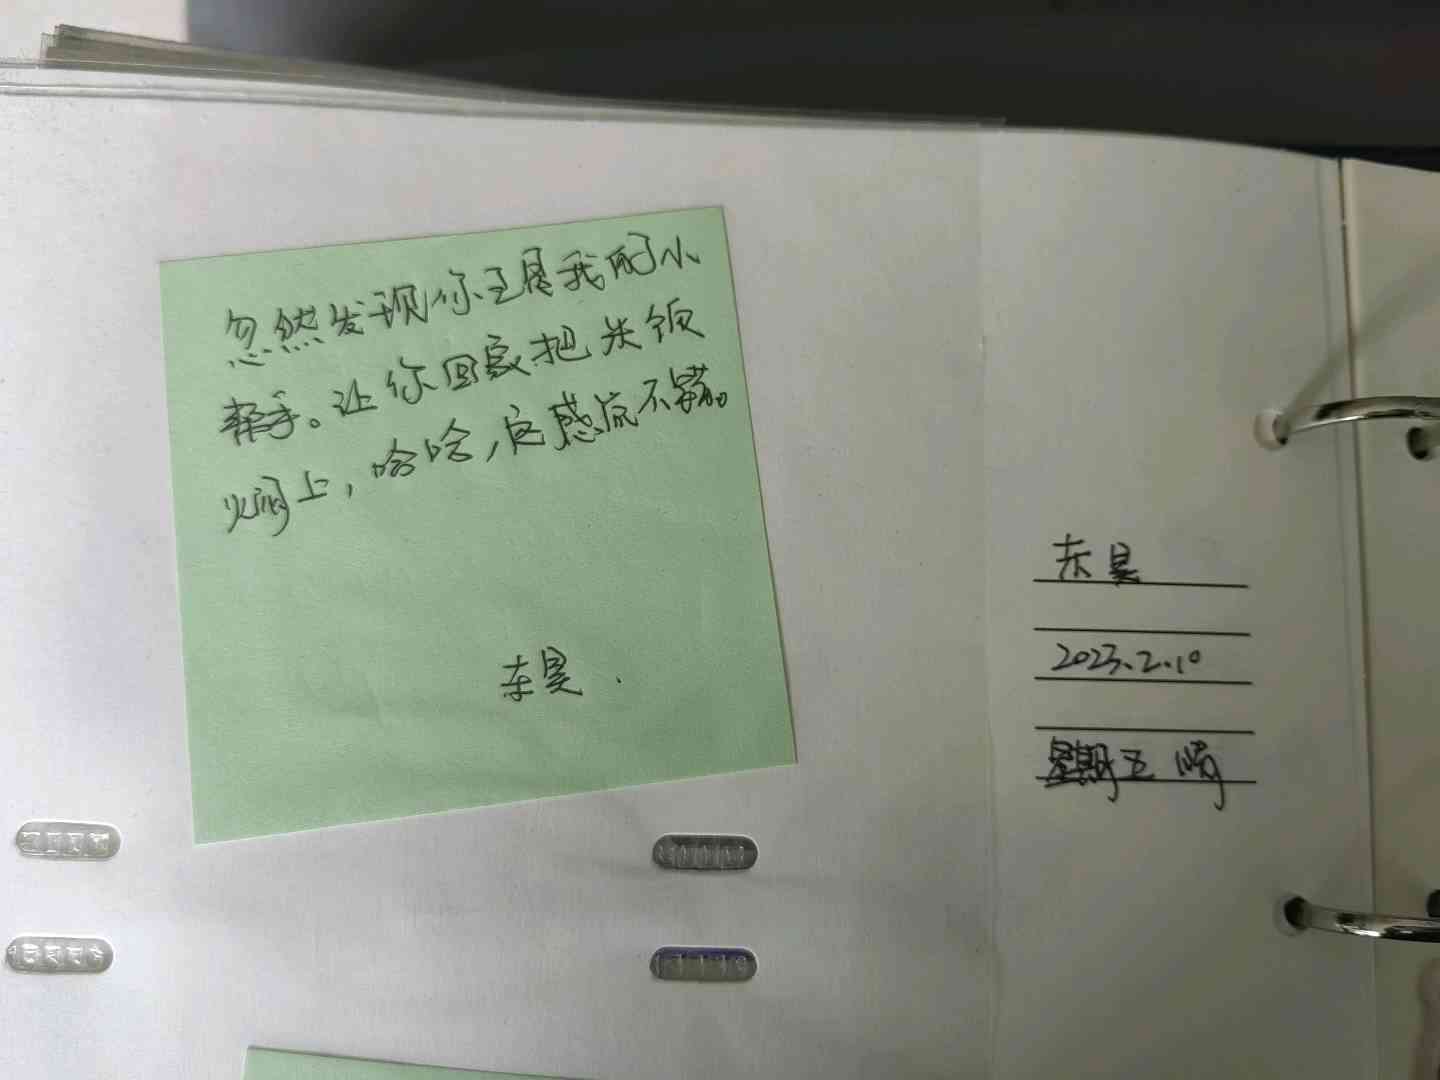 忽然发现你已是我的小
帮手。让你回家把米饭
焖上，哈哈，这感觉不错。
东昊.
东昊
2023.2.10
星期五 晴